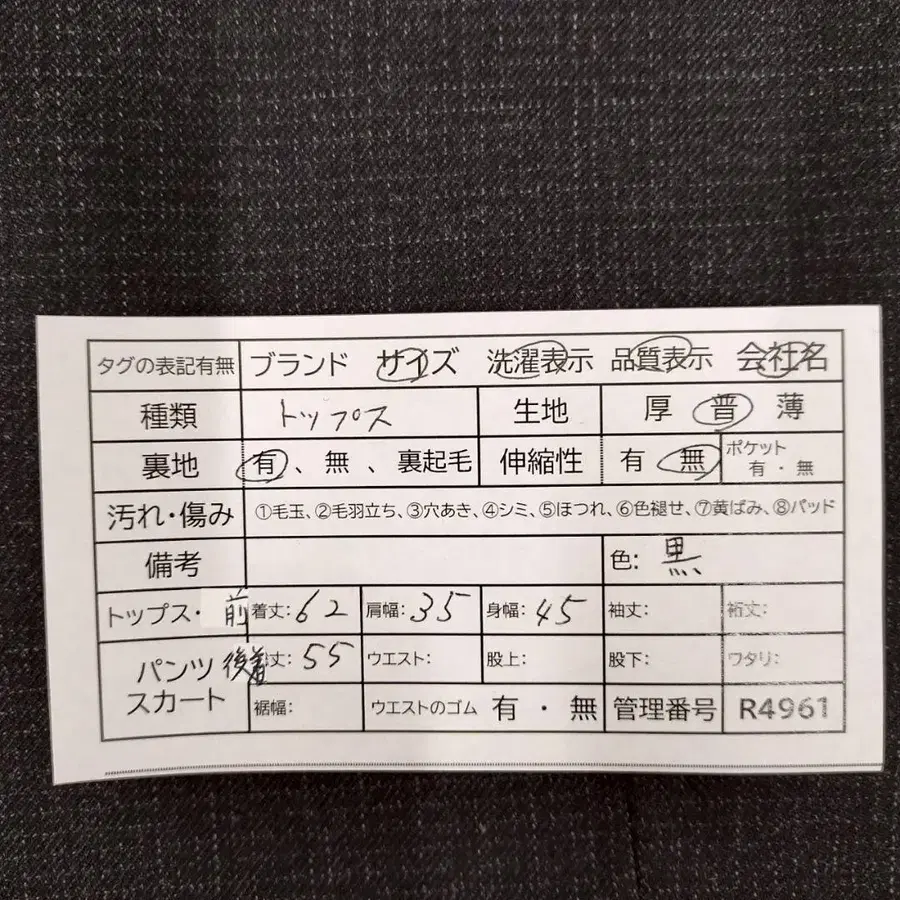 タグの表記有無 ブランド サイズ 洗濯表示 品質表示 会社名
種類 トップス 生地 厚 普 薄
裏地 有、無、裏起毛 伸縮性 有 無 ポケット 有・無
汚れ・傷み ①毛玉、②毛羽立ち、③穴あき、④シミ、⑤ほつれ、⑥色褪せ、⑦黄ばみ、⑧パッド
備考 色: 黒
トップス・ 前 着丈: 62 肩幅: 35 身幅: 45 袖丈: 裄丈:
パンツ スカート 後着丈: 55 ウエスト: 股上: 股下: ワタリ:
裾幅: ウエストのゴム 有・無 管理番号 R4961